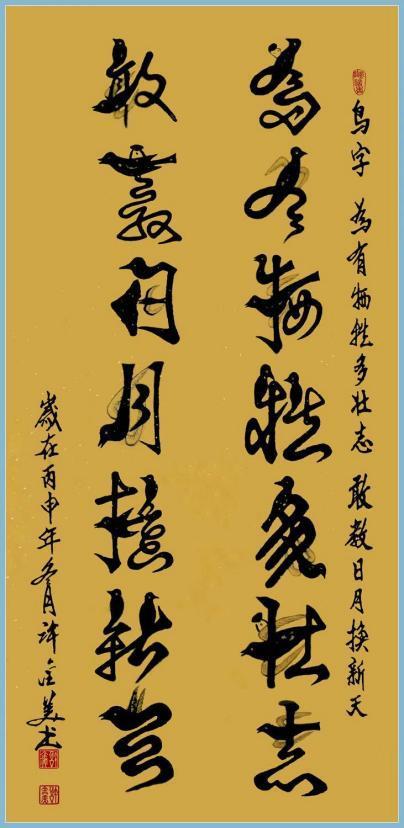 鸟字 為有牺牲多壮志 敢教日月换新天
為有牺牲多壮志
敢教日月换新天
歲在丙申年冬月許美书